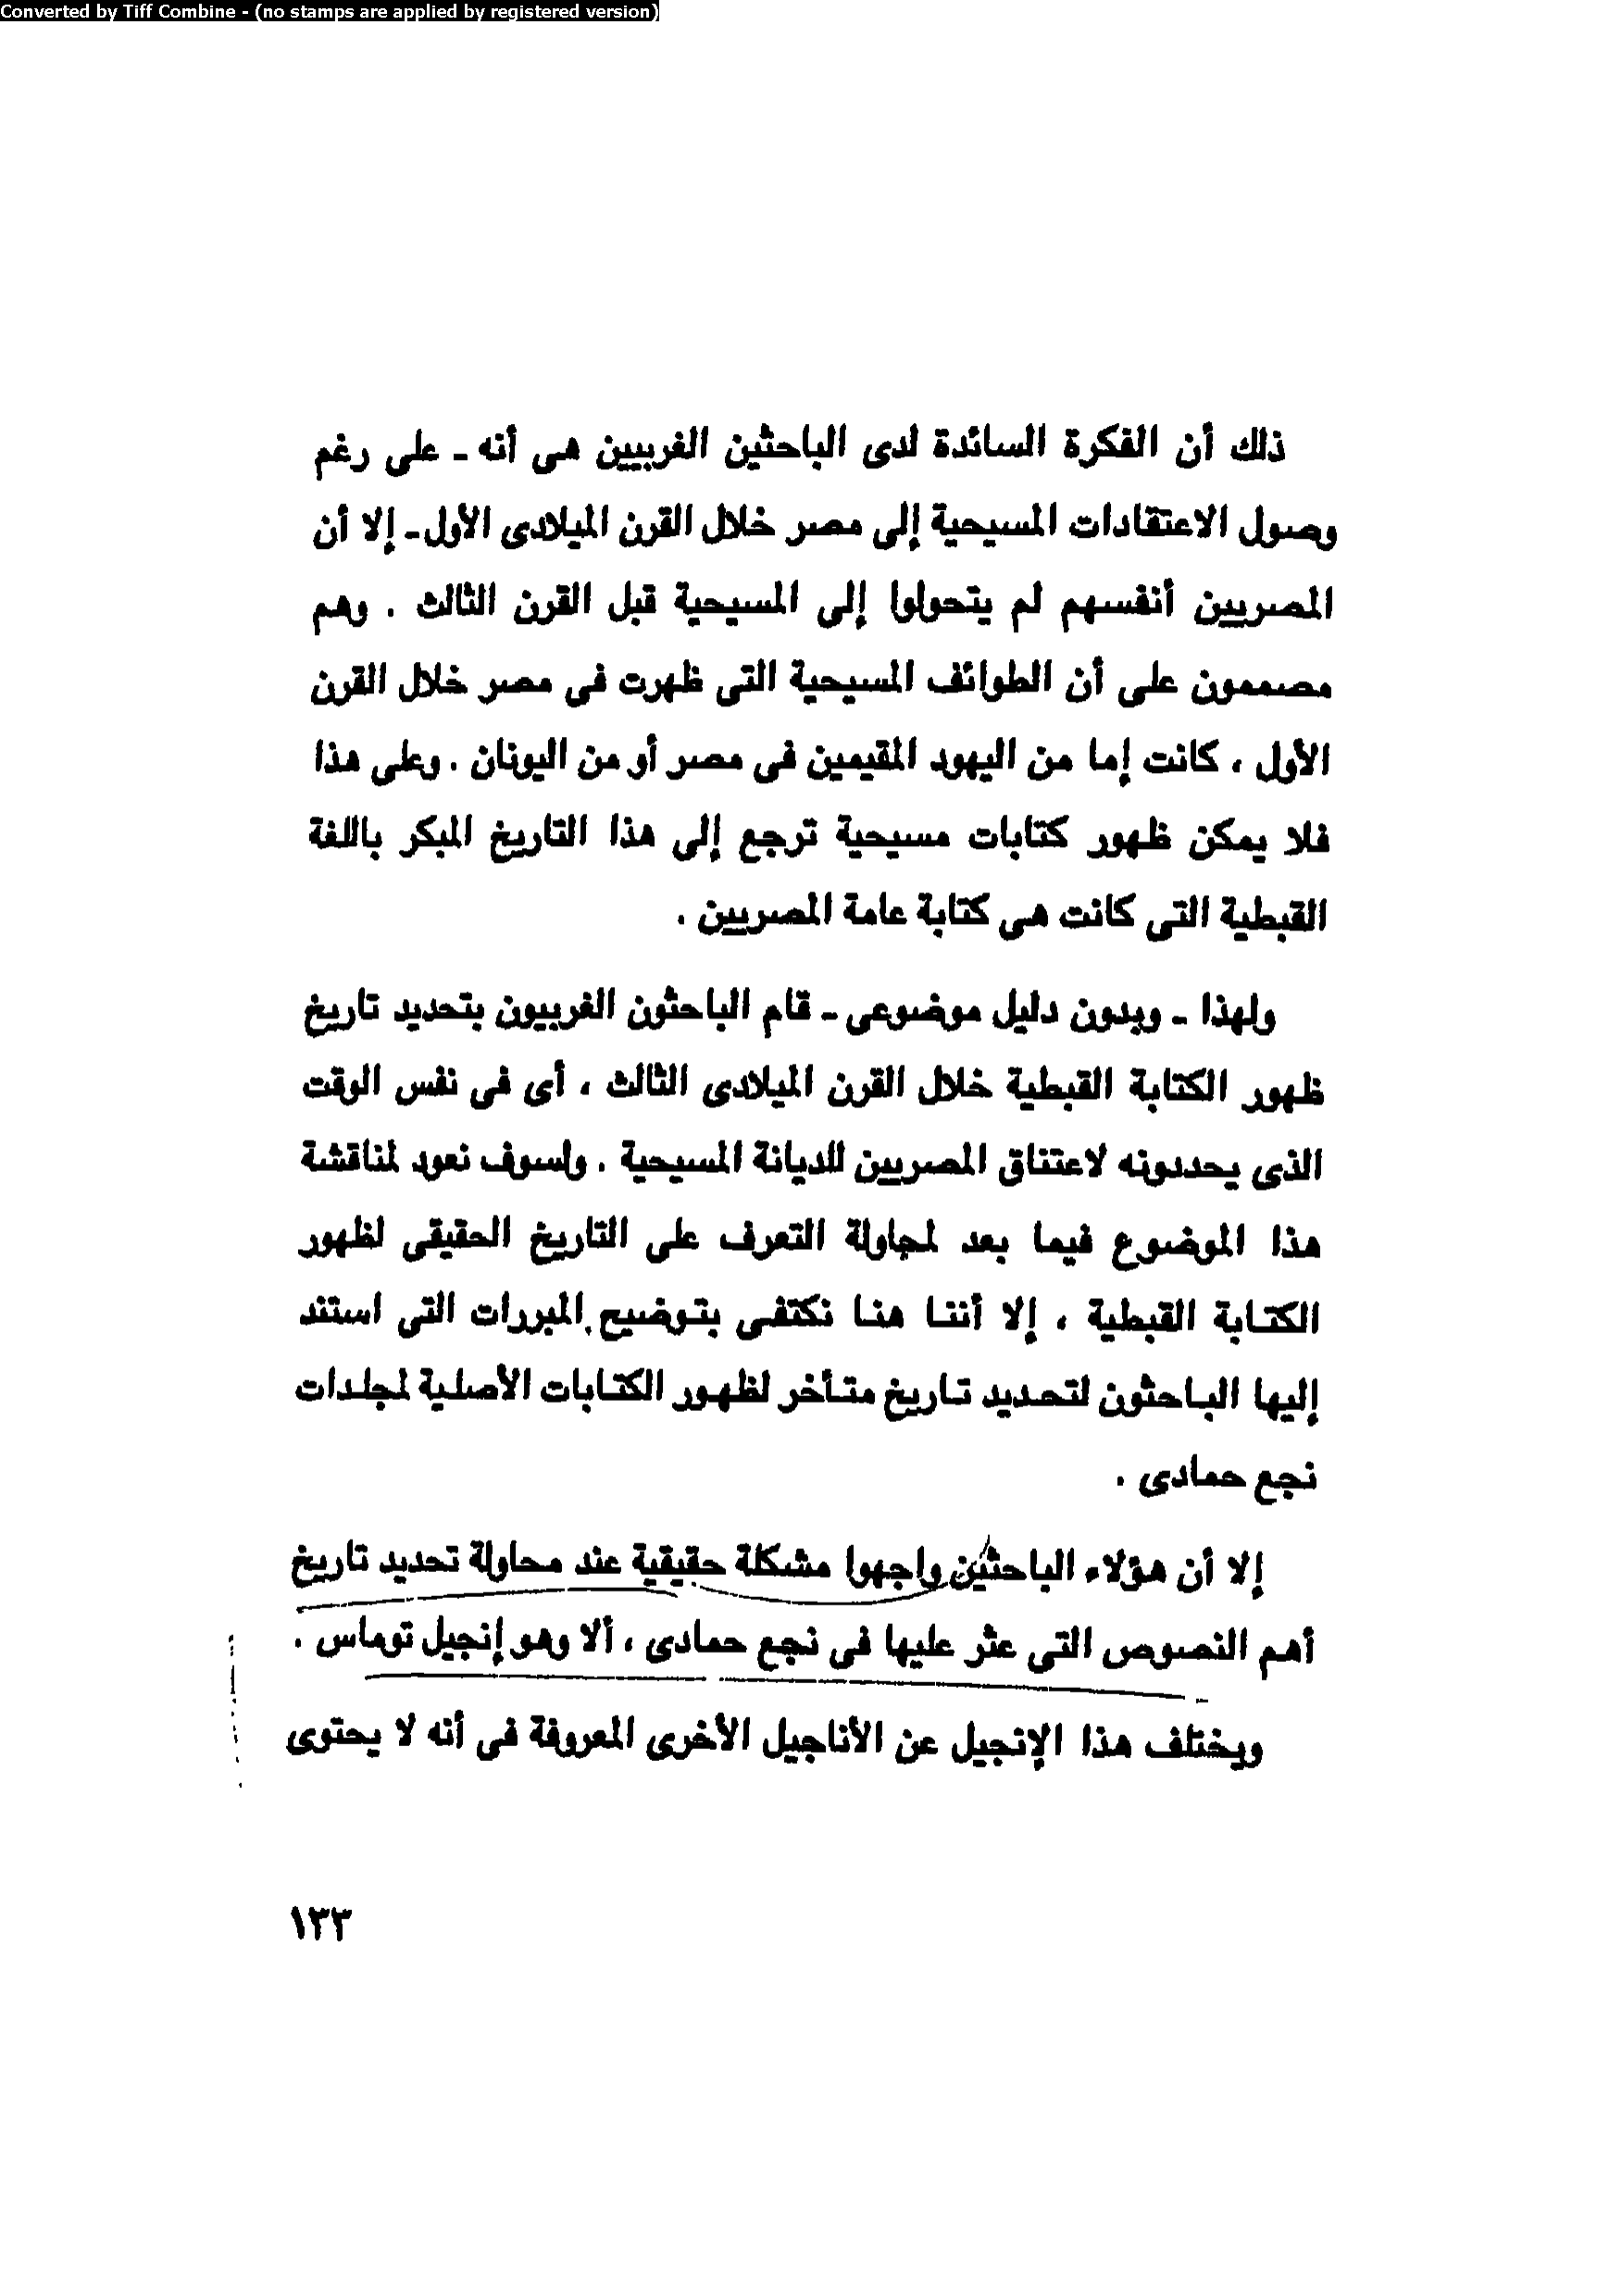 Converted by Tiff Combine - (no stamps are applied by registered version)
ذلك أن الفكرة السائدة لدى الباحثين الغربيين هى أنه ـ على رغم
وصول الاعتقادات المسيحية إلى مصر خلال القرن الميلادى الأول ـ إلا أن
المصريين أنفسهم لم يتحولوا إلى المسيحية قبل القرن الثالث . وهم
مصممون على أن الطوائف المسيحية التى ظهرت فى مصر خلال القرن
الأول ، كانت إما من اليهود المقيمين فى مصر أو من اليونان . وعلى هذا
فلا يمكن ظهور كتابات مسيحية ترجع إلى هذا التاريخ المبكر باللغة
القبطية التى كانت هى كتابة عامة المصريين .
ولهذا ـ وبدون دليل موضوعى ـ قام الباحثون الغربيون بتحديد تاريخ
ظهور الكتابة القبطية خلال القرن الميلادى الثالث ، أى فى نفس الوقت
الذى يحددونه لاعتناق المصريين للديانة المسيحية . ولسوف نعود لمناقشة
هذا الموضوع فيما بعد لمحاولة التعرف على التاريخ الحقيقى لظهور
الكتابة القبطية ، إلا أننا هنا نكتفى بتوضيح المبررات التى استند
إليها الباحثون لتحديد تاريخ متأخر لظهور الكتابات الأصلية لمجلدات
نجع حمادى .
إلا أن هؤلاء الباحثين واجهوا مشكلة حقيقية عند محاولة تحديد تاريخ
أهم النصوص التى عثر عليها فى نجع حمادى ، ألا وهو إنجيل توماس .
ويختلف هذا الإنجيل عن الأناجيل الأخرى المعروفة فى أنه لا يحتوى
١٣٣